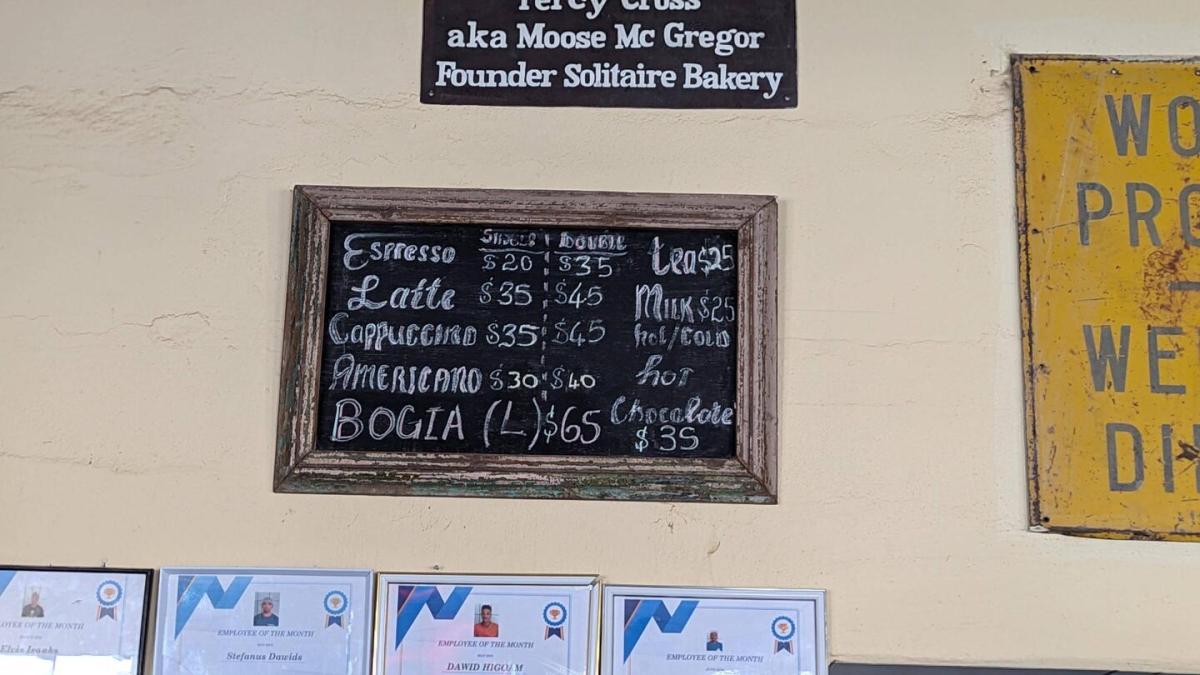 Percy Cross
aka Moose Mc Gregor
Founder Solitaire Bakery
SINGLE DOUBLE
Espresso $20 $35
Latte $35 $45
Cappuccino $35 $45
AMERICANO $30 $40
BOGIA (L) $65
tea $25
MILK $25
hot/COLD
hot
Chocolate
$35
WO
PRO
WE
DI
EMPLOYEE OF THE MONTH
Elvis Isaaks
EMPLOYEE OF THE MONTH
Stefanus Dawids
EMPLOYEE OF THE MONTH
EMPLOYEE OF THE MONTH